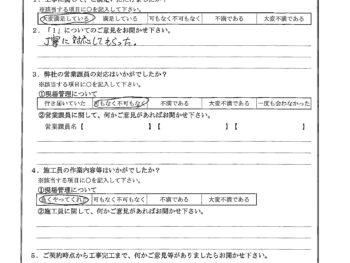 ※該当する項目に○を記入して下さい。
大変満足している 満足している 可もなく不可もなく 不満である 大変不満である
2．「1」についてのご意見をお聞かせ下さい。
丁寧に対応してもらった。
3．弊社の営業課員の対応はいかがでしたか？
※該当する項目に○を記入して下さい。
①現場管理について
行き届いていた 可もなく不可もなく 不満である 大変不満である 一度も会わなかった
②営業課員に関して、何かご意見があればお聞かせ下さい。
営業課員名【 】【 】【 】
4．施工員の作業内容等はいかがでしたか？
※該当する項目に○を記入して下さい。
①現場管理について
良くやってくれた 可もなく不可もなく 不満である 大変不満である
②施工員に関して、何かご意見があればお聞かせ下さい。
5．ご契約時点から工事完工まで、何かご意見等がありましたらお聞かせ下さい。